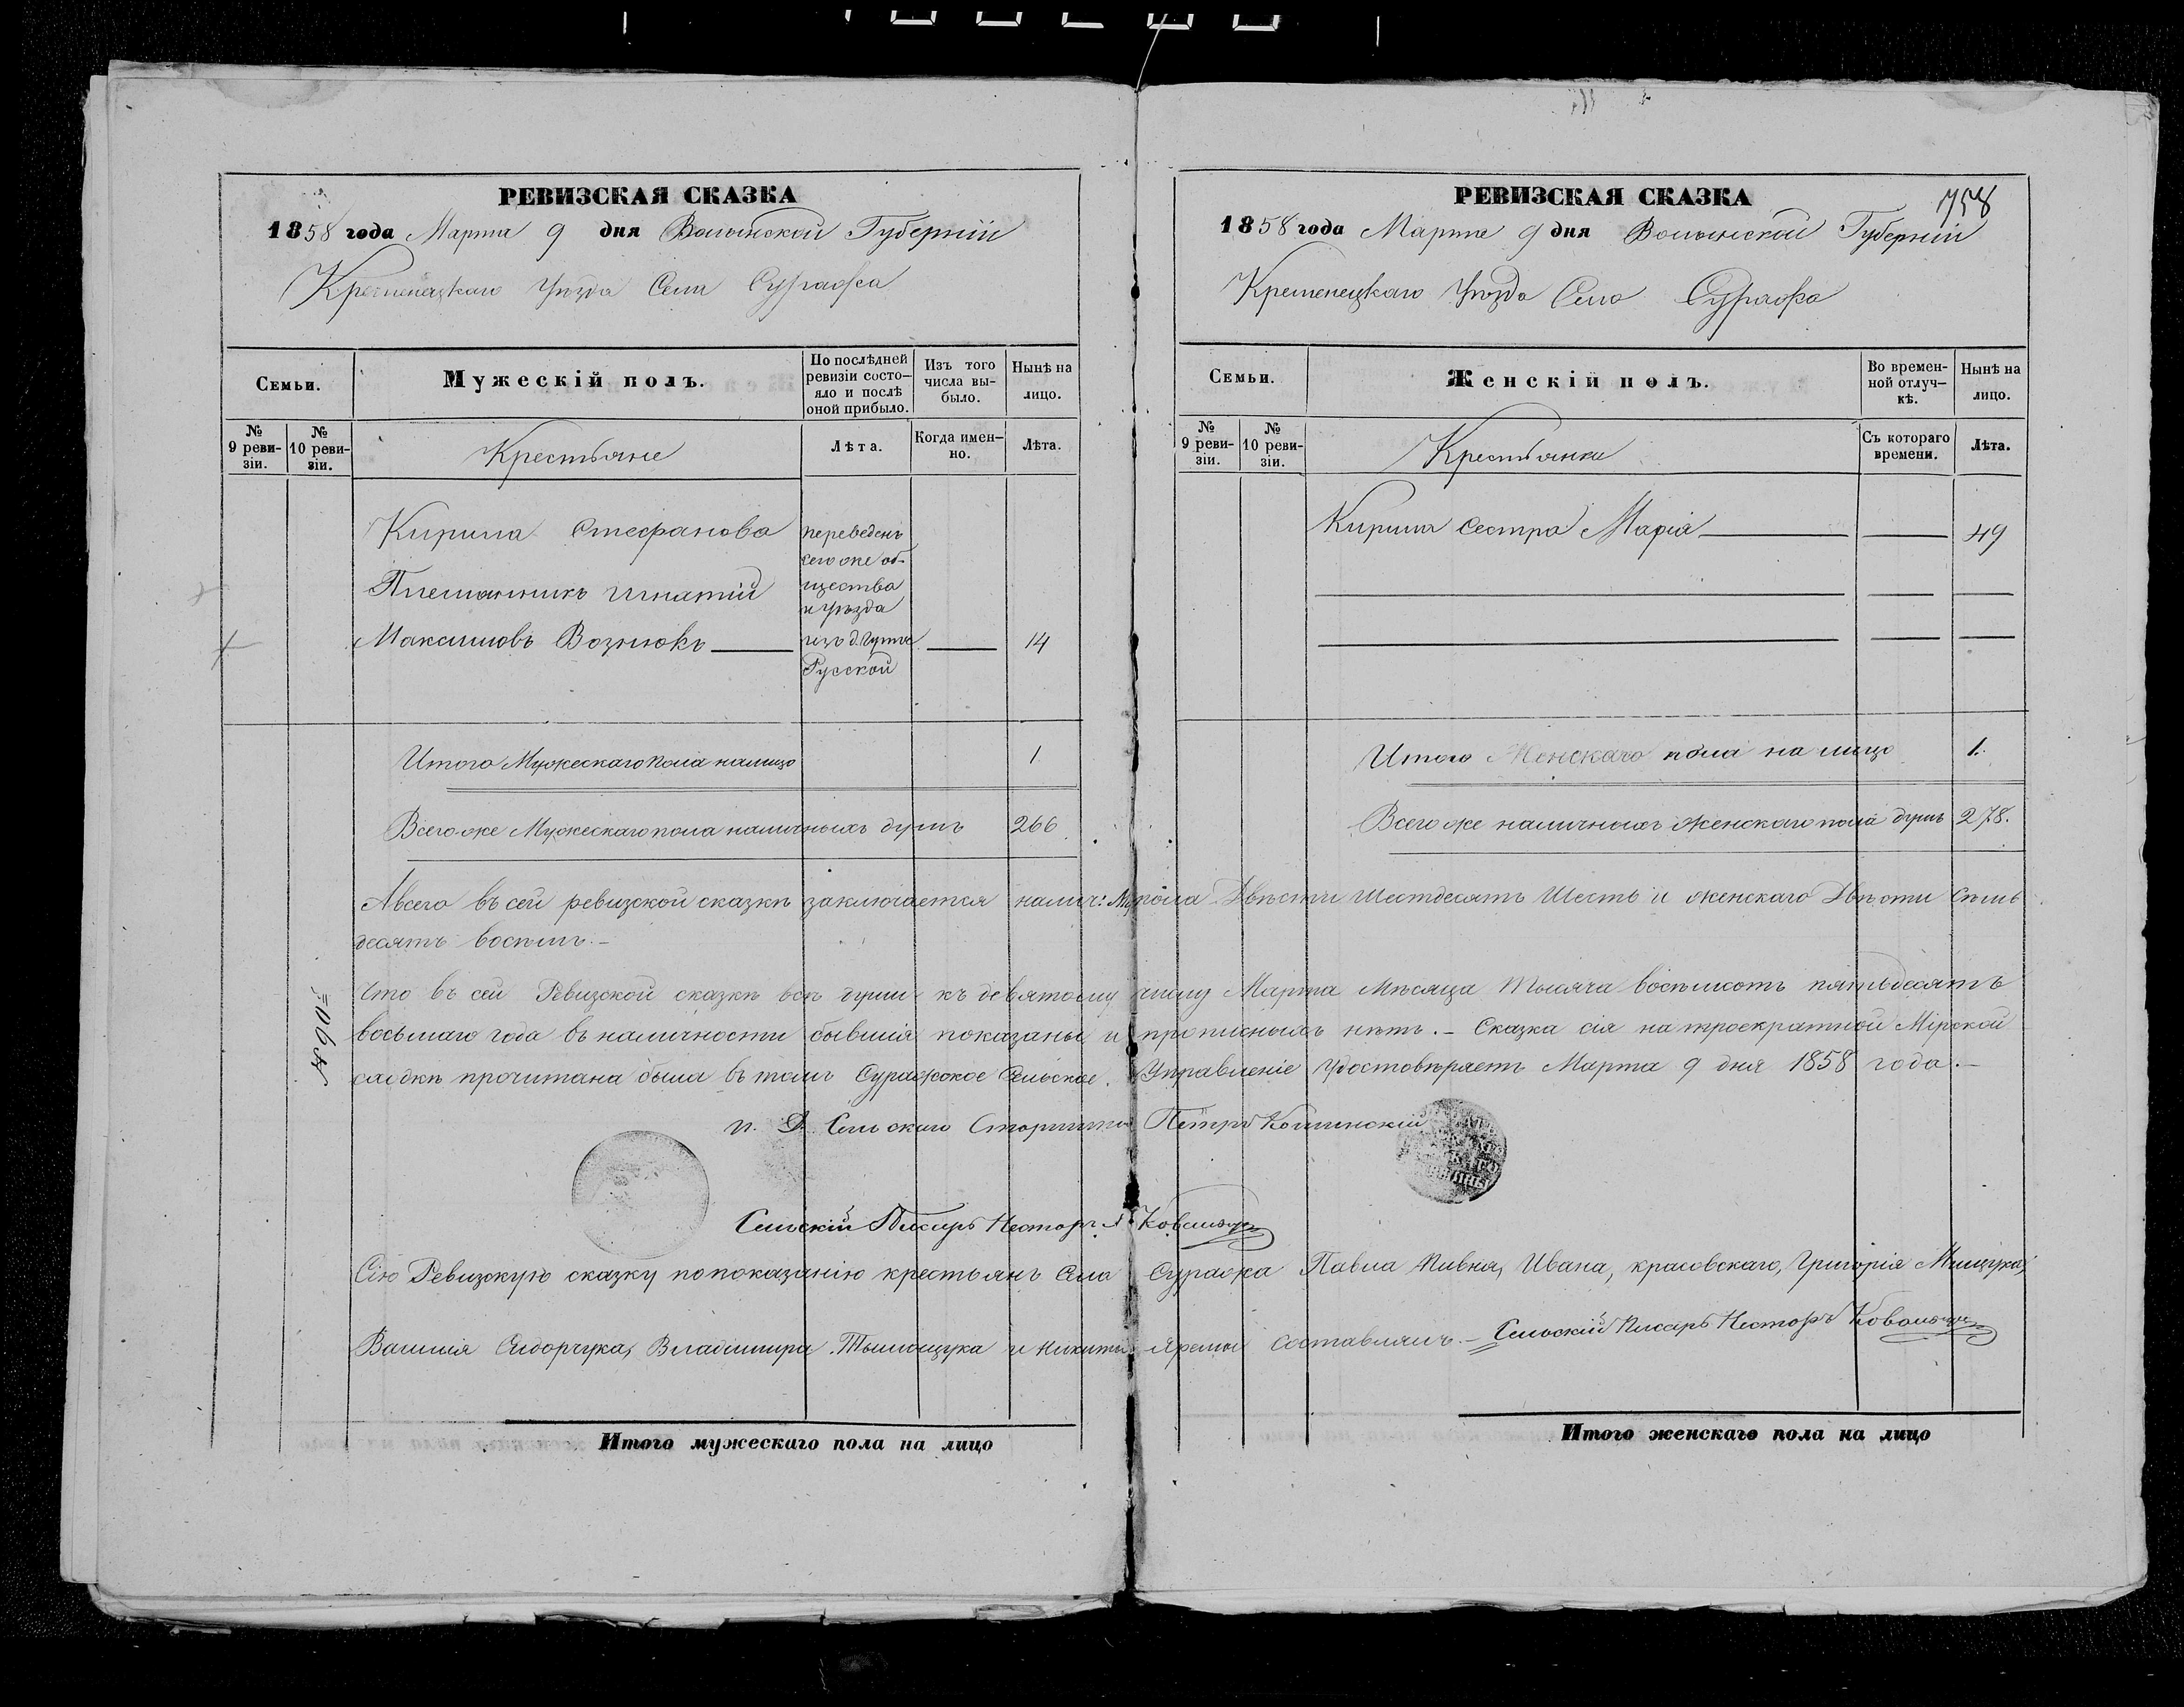 РЕВИЗСКАЯ СКАЗКА
1858 года Марта 9 дня Волынской Губернiи
Кременецкаго Уѣзда Села Суража
Семьи.
Мужескiй полъ.
По послѣдней ревизiи состо-яло и послѣ оной прибыло.
Изъ того числа вы-было.
Нынѣ на лицо.
№ 9 реви-зiи.
№ 10 реви-зiи.
Крестьяне
Лѣта.
Когда имен-но.
Лѣта.
Кирила Стефанова
переведенъ
сего же об-
Племянникъ Игнатiй
щества
и уѣзда
Максимовъ Вознюкъ
изъ д. Гутты
14
Русской
Итого Мужескаго пола налицо 1
Всего же Мужескаго пола наличныхъ душъ 266
РЕВИЗСКАЯ СКАЗКА
758
1858 года Марта 9 дня Волынской Губернiи
Кременецкаго Уѣзда Село Суража
Семьи.
Женскiй полъ.
Во времен-ной отлуч-кѣ.
Нынѣ на лицо.
№ 9 реви-зiи.
№ 10 реви-зiи.
Крестьянки
Съ котораго времени.
Лѣта.
Кирила сестра Марiя 49
Итого Женскаго пола на лицо 1.
Всего же наличныхъ женскаго пола душъ 278.
А всего въ сей ревизской сказкѣ заключается налич: Му пола Двѣсти Шестдесятъ Шесть и женскаго Двѣсти Семь
десятъ восемь.-
Что въ сей Ревизской сказкѣ всѣ души къ девятому числу Марта Мѣсяца Тысяча восемьсотъ пятьдесятъ
восьмаго года въ наличности бывшiя показаны и прописныхъ нѣтъ.- Сказка сiя на троекратной Мiрской
сходкѣ прочитана была въ томъ Суражское Сельское. Управленiе удостовѣряетъ Марта 9 дня 1858 года.-
И. Д. Сельскаго Старшины Петръ
Сельскiй Писарь Несторъ
Сiю Ревизскую сказку попоказанiю крестьянъ Села Суража Павла Пивня, Ивана, красовскаго, Григорiя Мищука,
Сидорчука, Владимира и Никиты Яремы составлялъ.- Сельскiй Писарь Несторъ
Итого мужескаго пола на лицо
Итого женскаго пола на лицо